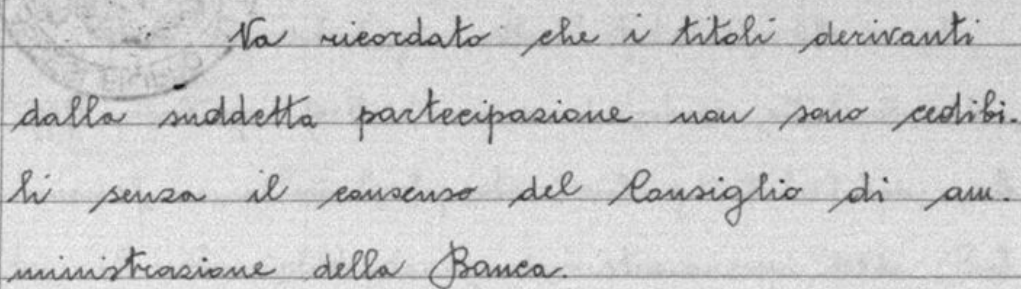 Va ricordato che i titoli derivanti
dalla suddetta partecipazione non sono cedibi-
li senza il consenso del Consiglio di am-
ministrazione della Banca.